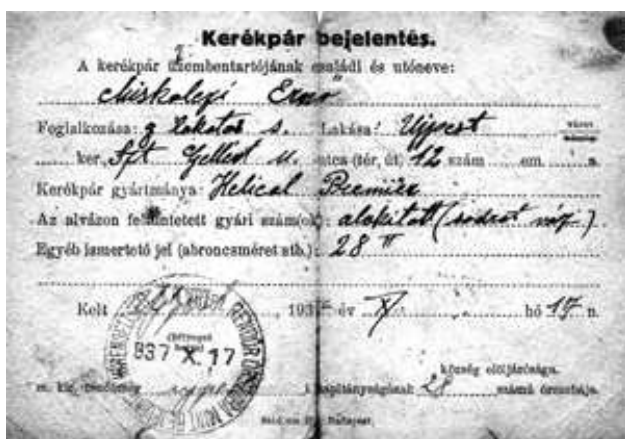 Kerékpár bejelentés.
A kerékpár üzembentartójának családi és utóneve:
Miskolczi Ernő
Foglalkozása: g lakatos s. Lakása: Ujpest
ker. Szt Gellért u. utca (tér, út) 12 szám em. a.
Kerékpár gyártmánya: Helical Premier
Az alvázon feltüntetett gyári szám(ok): alakitott (sodrott váz)
Egyéb ismertető jel (abroncsméret stb.): 28"
Kelt 193 év X hó 17 n.
937 X. 17
község elöljárósága.
m. kir. kapitányságának 28 számú őrszobája.
Budapest.